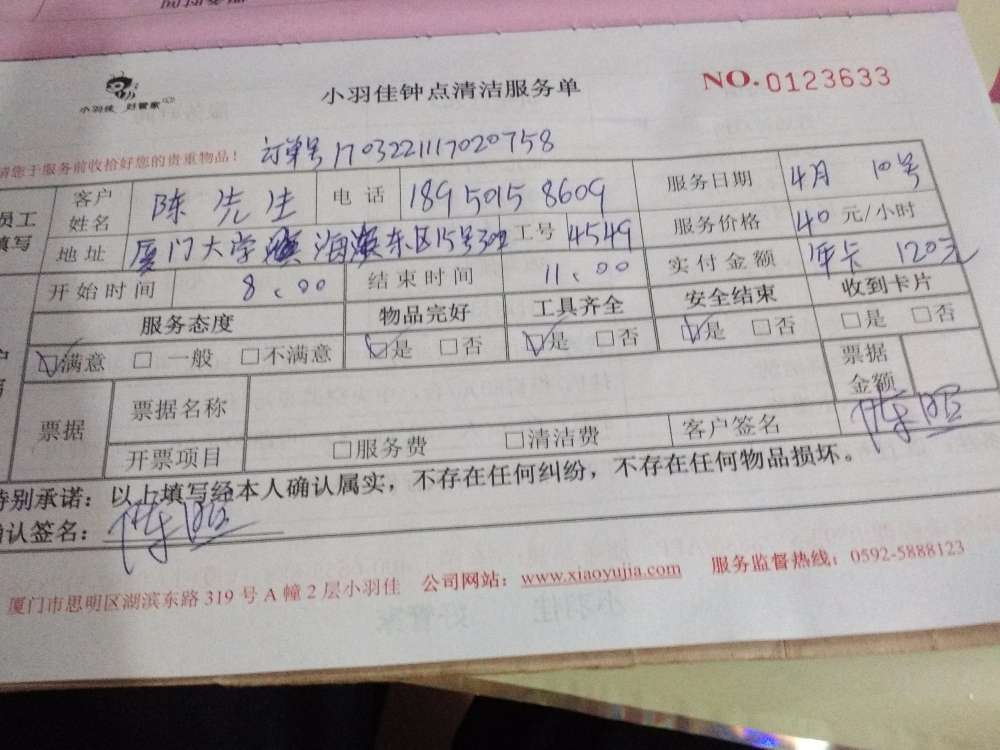 小羽佳 好管家
小羽佳钟点清洁服务单
NO.0123633
请您于服务前收拾好您的贵重物品！ 订单号 1703221117020758
员工填写
客户姓名 陈先生 电话 18950158609 服务日期 4月 10号
地址 厦门大学 海滨东区15号302 工号 4549 服务价格 40 元/小时
开始时间 8:00 结束时间 11:00 实付金额 年卡 120元
服务态度 物品完好 工具齐全 安全结束 收到卡片
☑满意 □一般 □不满意 ☑是 □否 ☑是 □否 ☑是 □否 □是 □否
票据 票据名称 票据金额
开票项目 □服务费 □清洁费 客户签名
特别承诺：以上填写经本人确认属实，不存在任何纠纷，不存在任何物品损坏。
确认签名：
厦门市思明区湖滨东路 319 号 A 幢 2 层小羽佳 公司网站：www.xiaoyujia.com 服务监督热线：0592-5888123